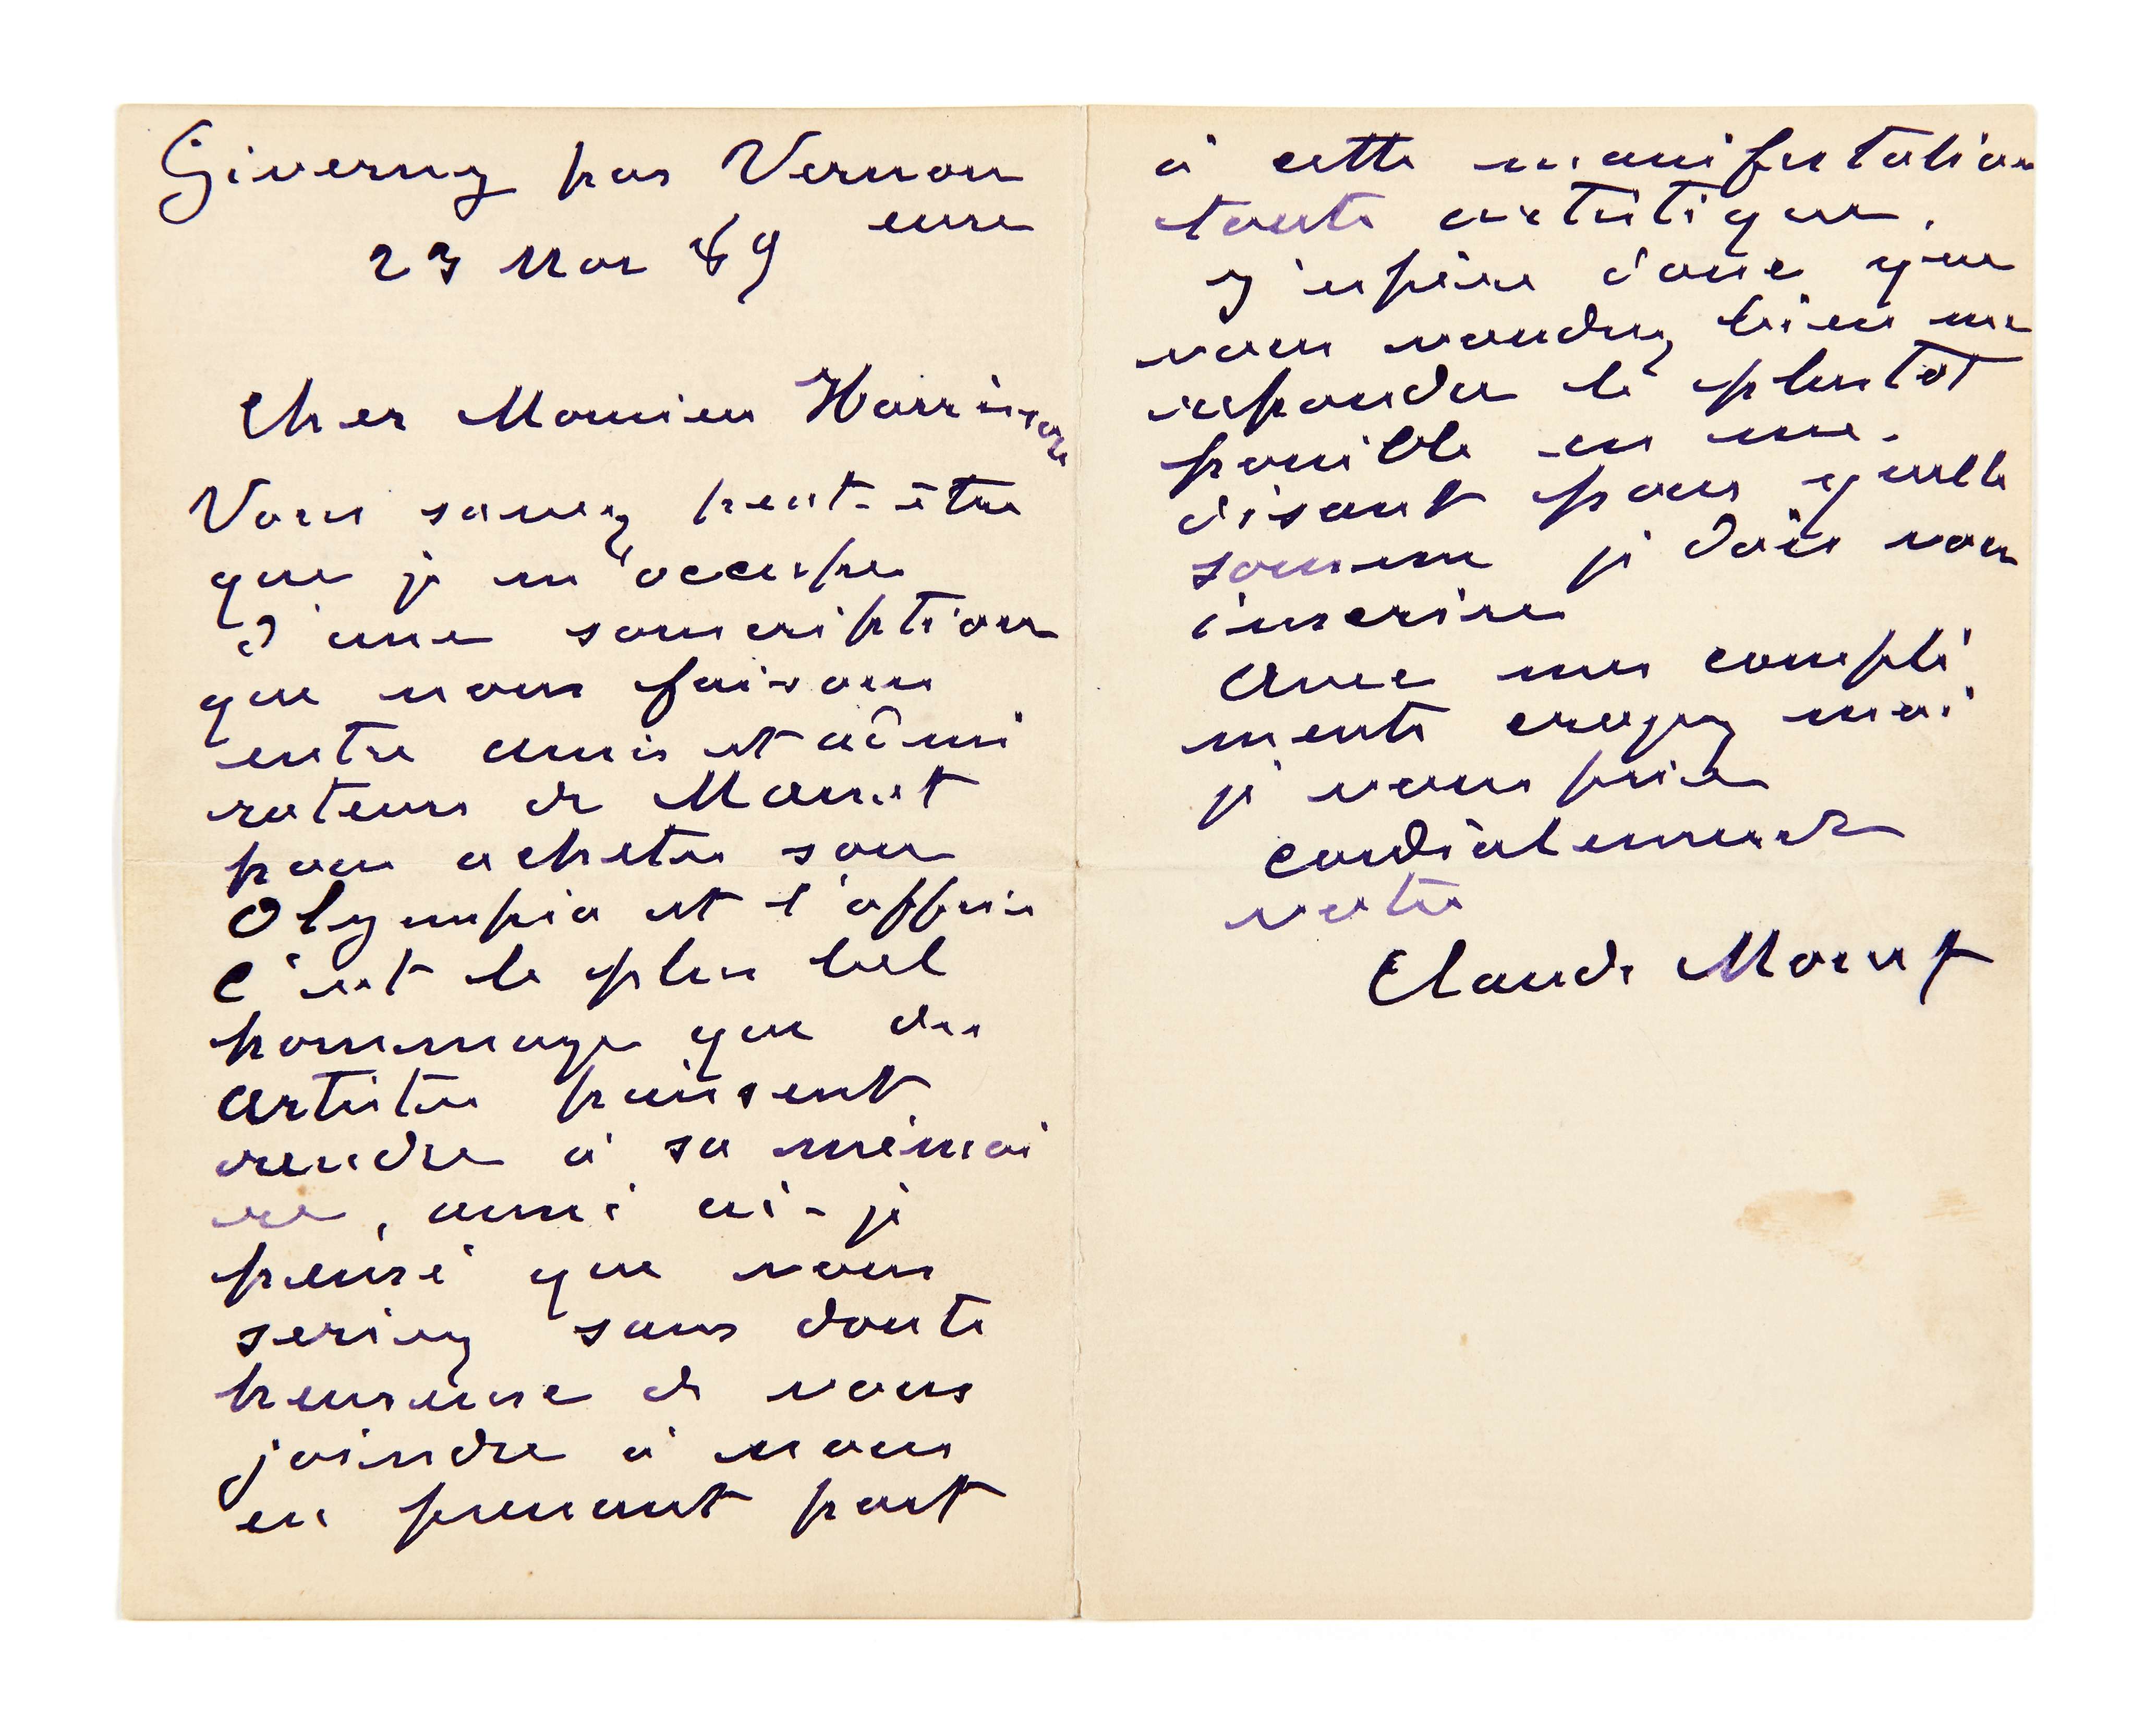 Giverny par Vernon
eure
23 Nov 89
Cher Monsieur Harrison
Vous savez peut-être
que je m'occupe
d'une souscription
que nous faisons
entre amis et admi
rateurs de Manet
pour acheter son
Olympia et l'offrir
c'est le plus bel
hommage que des
artistes puissent
rendre à sa mémoi
re, aussi ai-je
pensé que vous
seriez sans doute
heureux de vous
joindre à nous
en prenant part
à cette manifestation
toute artistique.
J'espère donc que
vous voudrez bien me
répondre le plus tôt
possible en me
disant pour quelle
somme je dois vous
inscrire
Avec mes compli
ments croyez moi
je vous prie
cordialement
votre
Claude Monet